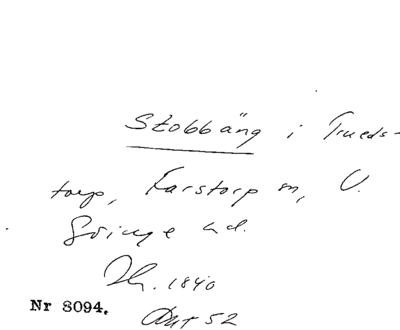 Stobbäng i Trueds-
torp, Farstorp sn, V.
Göinge hd.
Lh. 1840
Nr 8094. Akt 52